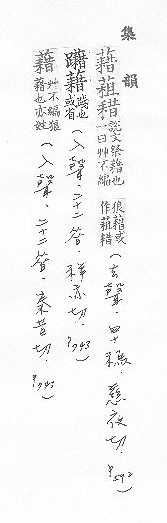 集韻
藉蒩耤 說文祭藉也一曰艸不編狼藉或作蒩耤(去聲.四十禡.慈夜切.P592)
躤藉 踐也或省(入聲.二十二㫺.秦昔切.P743)
藉 艸不編狼藉也亦姓(入聲.二十二㫺.秦昔切.P743)